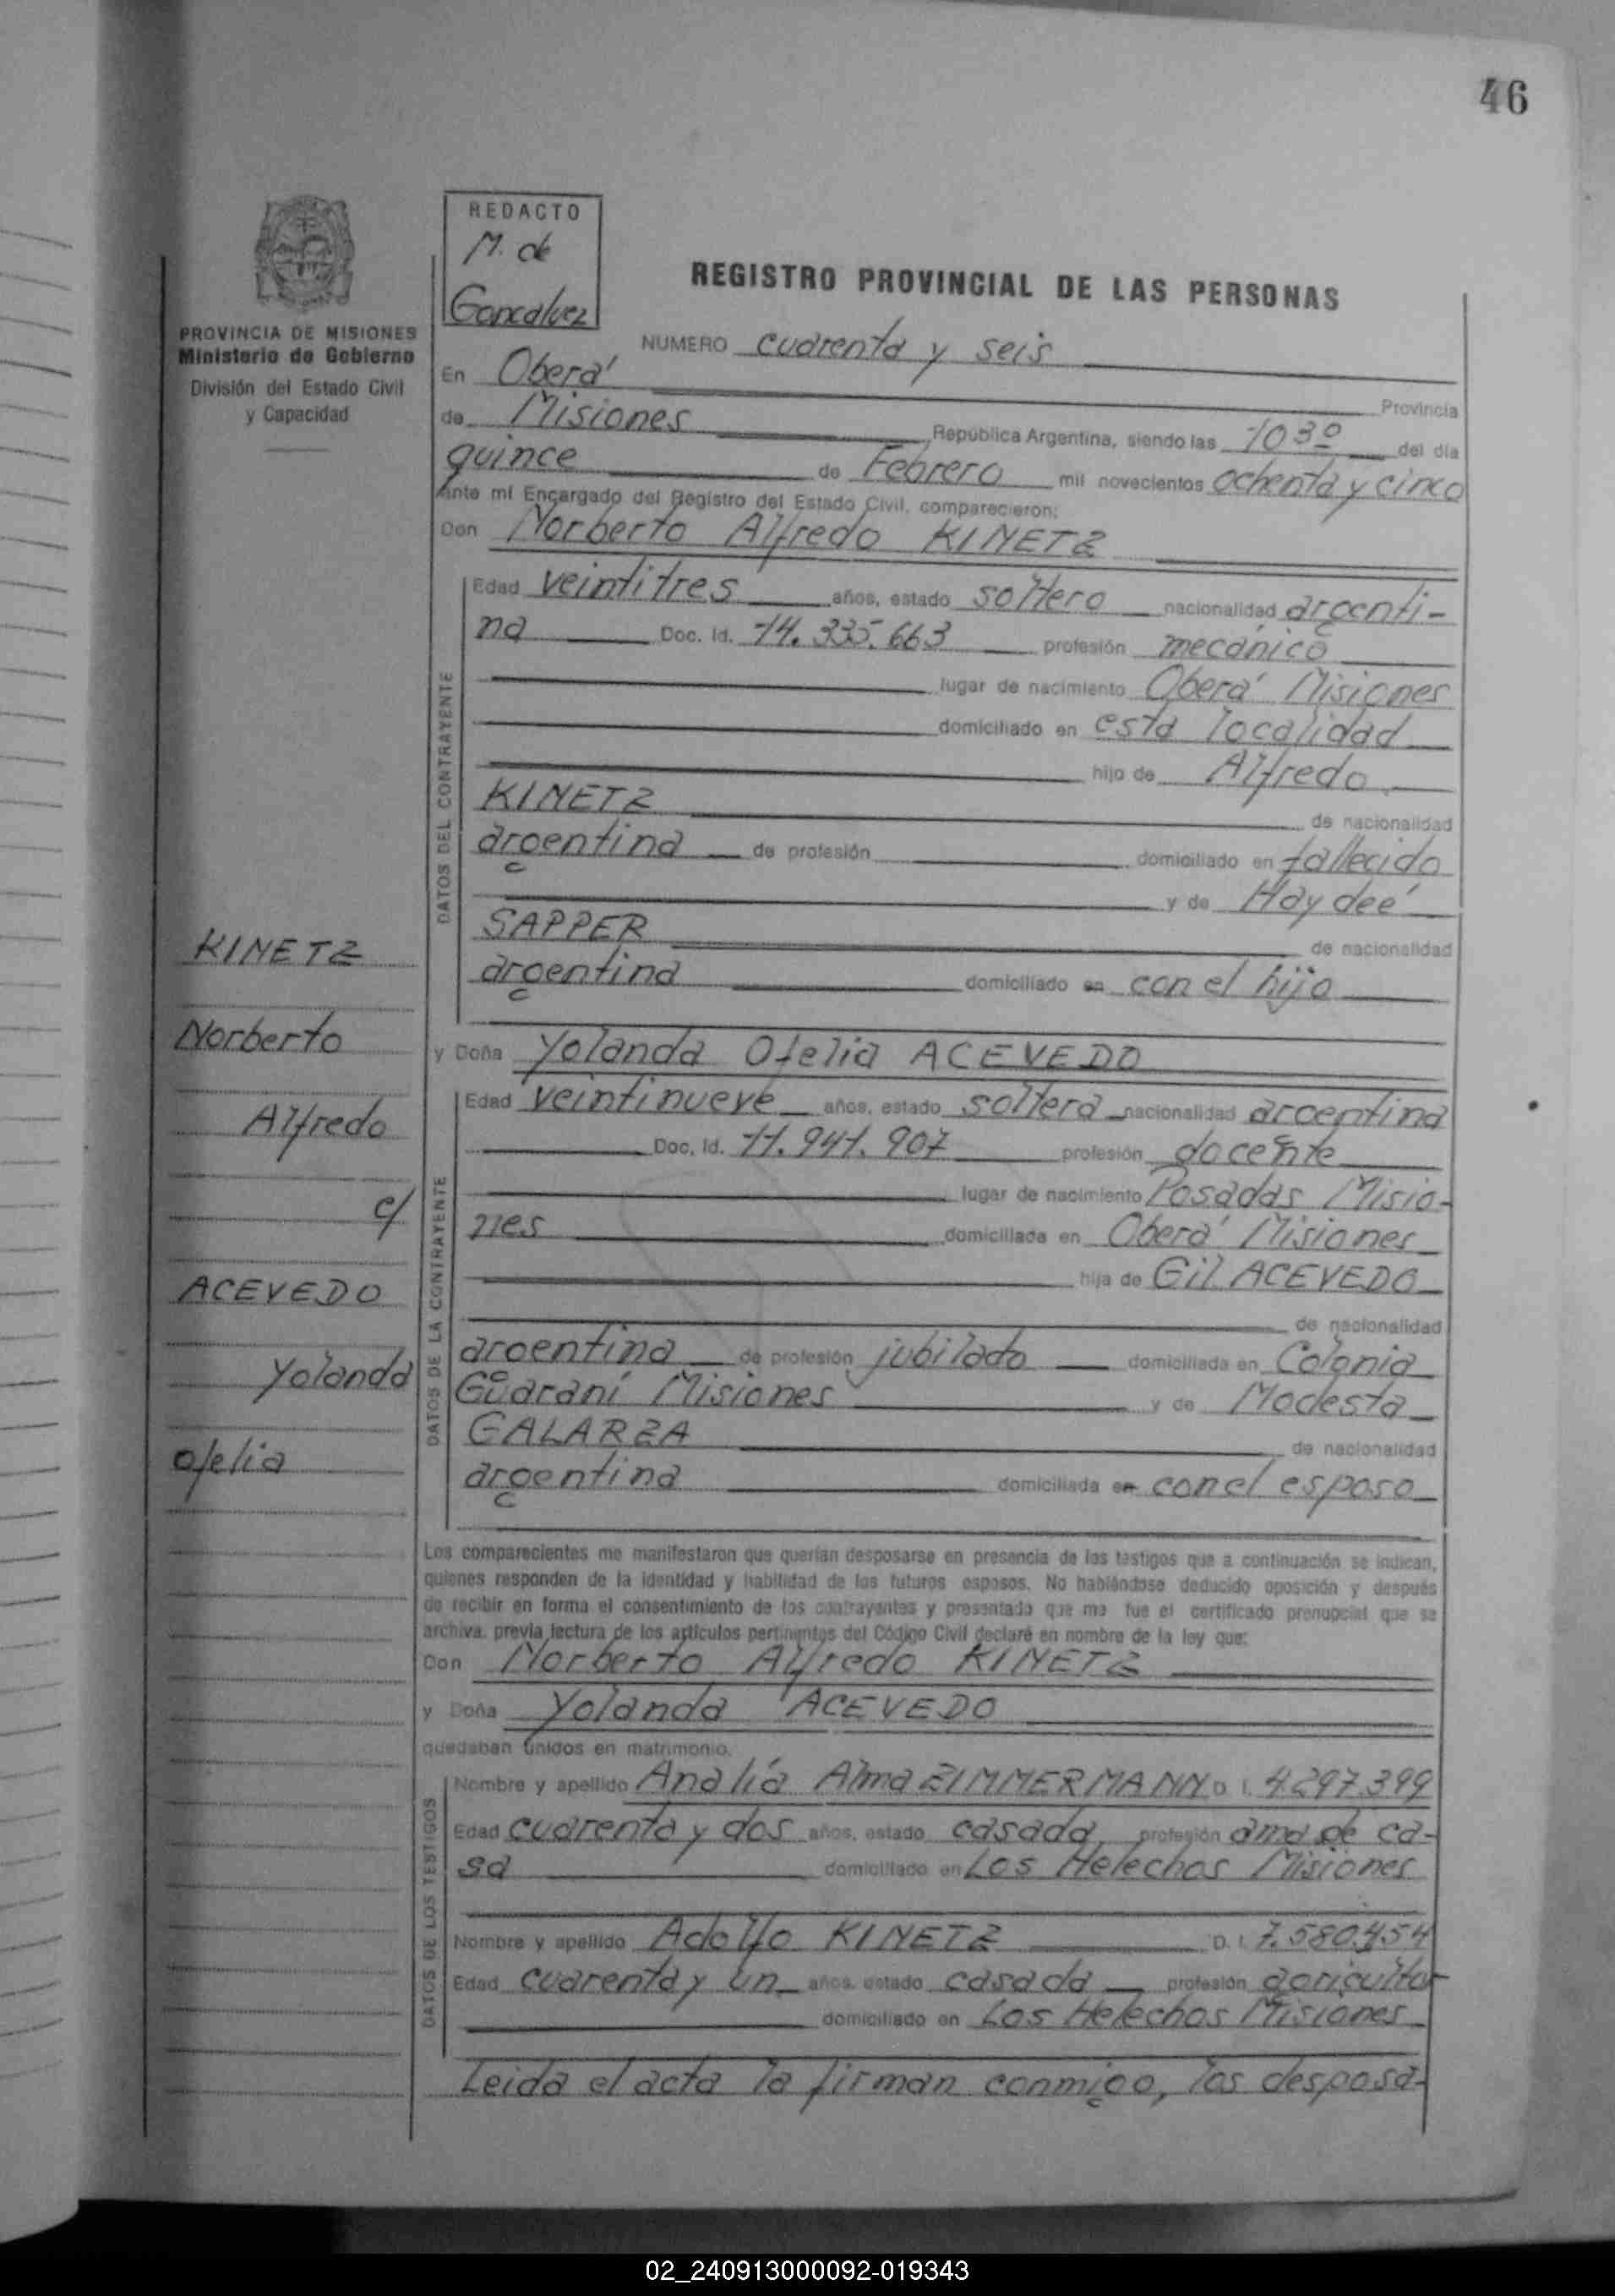 46
REDACTO
M. de
Goncalvez
PROVINCIA DE MISIONES
Ministerio de Gobierno
División del Estado Civil
y Capacidad
REGISTRO PROVINCIAL DE LAS PERSONAS
NUMERO cuarenta y seis
En Oberá Provincia
de Misiones República Argentina, siendo las 1030 del día
quince de Febrero mil novecientos ochenta y cinco
Ante mí Encargado del Registro del Estado Civil, comparecieron:
Don Norberto Alfredo KINETZ
DATOS DEL CONTRAYENTE
Edad veintitres años, estado soltero nacionalidad argenti-
na Doc. Id. 14.335.663 profesión mecánico
lugar de nacimiento Oberá Misiones
domiciliado en esta localidad
hijo de Alfredo
KINETZ de nacionalidad
argentina de profesión domiciliado en fallecido
y de Haydeé
SAPPER de nacionalidad
argentina domiciliado en con el hijo
y Doña Yolanda Ofelia ACEVEDO
DATOS DE LA CONTRAYENTE
Edad veintinueve años, estado soltera nacionalidad argentina
Doc. Id. 11.941.907 profesión docente
lugar de nacimiento Posadas Misio-
nes domiciliada en Oberá Misiones
hija de Gil ACEVEDO
de nacionalidad
argentina de profesión jubilado domiciliada en Colonia
Guaraní Misiones y de Modesta
GALARZA de nacionalidad
argentina domiciliada en con el esposo
KINETZ
Norberto
Alfredo
c/
ACEVEDO
Yolanda
Ofelia
Los comparecientes me manifestaron que querían desposarse en presencia de los testigos que a continuación se indican,
quienes responden de la identidad y habilidad de los futuros esposos. No habiéndose deducido oposición y después
de recibir en forma el consentimiento de los contrayentes y presentado que me fue el certificado prenupcial que se
archiva, previa lectura de los artículos pertinentes del Código Civil declaré en nombre de la ley que:
Don Norberto Alfredo KINETZ
y Doña Yolanda ACEVEDO
quedaban unidos en matrimonio.
DATOS DE LOS TESTIGOS
Nombre y apellido Analía Alma ZIMMERMANN D. I. 4.297.399
Edad cuarenta y dos años, estado casada profesión ama de ca-
sa domiciliado en Los Helechos Misiones
Nombre y apellido Adolfo KINETZ D. I. 7.580.454
Edad cuarenta y un años, estado casado profesión agricultor
domiciliado en Los Helechos Misiones
Leida el acta la firman conmigo, los desposa-
02_240913000092-019343